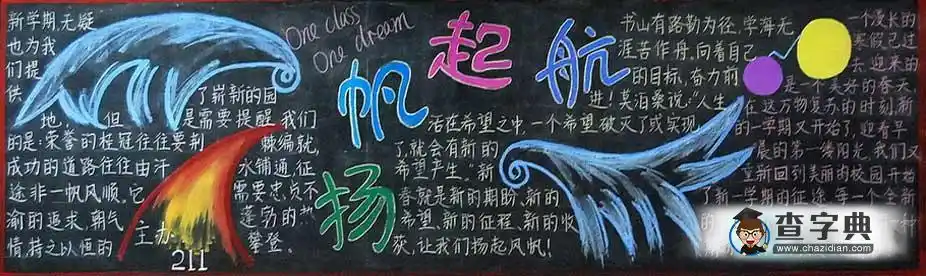 One class
One dream
扬帆起航
新学期，无疑
也为我
们提
供 了崭新的园
地， 但 是需要提醒我们
的是：荣誉的桂冠往往要荆 棘编就，
成功的道路往往由汗 水铺通，征
途非一帆风顺。它 需要忠贞不
渝的追求，朝气 蓬勃的热
情，持之以恒的 攀登。
主办
211
书山有路勤为径，学海无
涯苦作舟，向着自己
的目标，奋力前
进！莫泊桑说：“人生
活在希望之中，一个希望破灭了或实现
了，就会有新的
希望产生。”新
春就是新的期盼、新的
希望、新的征程、新的收
获，让我们扬起风帆！
一个漫长的
寒假已过
去，迎来的
是一个美好的春天
在这万物复苏的时刻，新
的一学期又开始了，迎着早
晨的第一缕阳光，我们又
重新回到美丽的校园，开始
了新一学期的征途，每一个全新
的
一种
查字典
www.chazidian.com